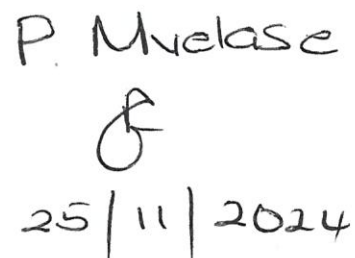 P. Mvelase
25/11/2024